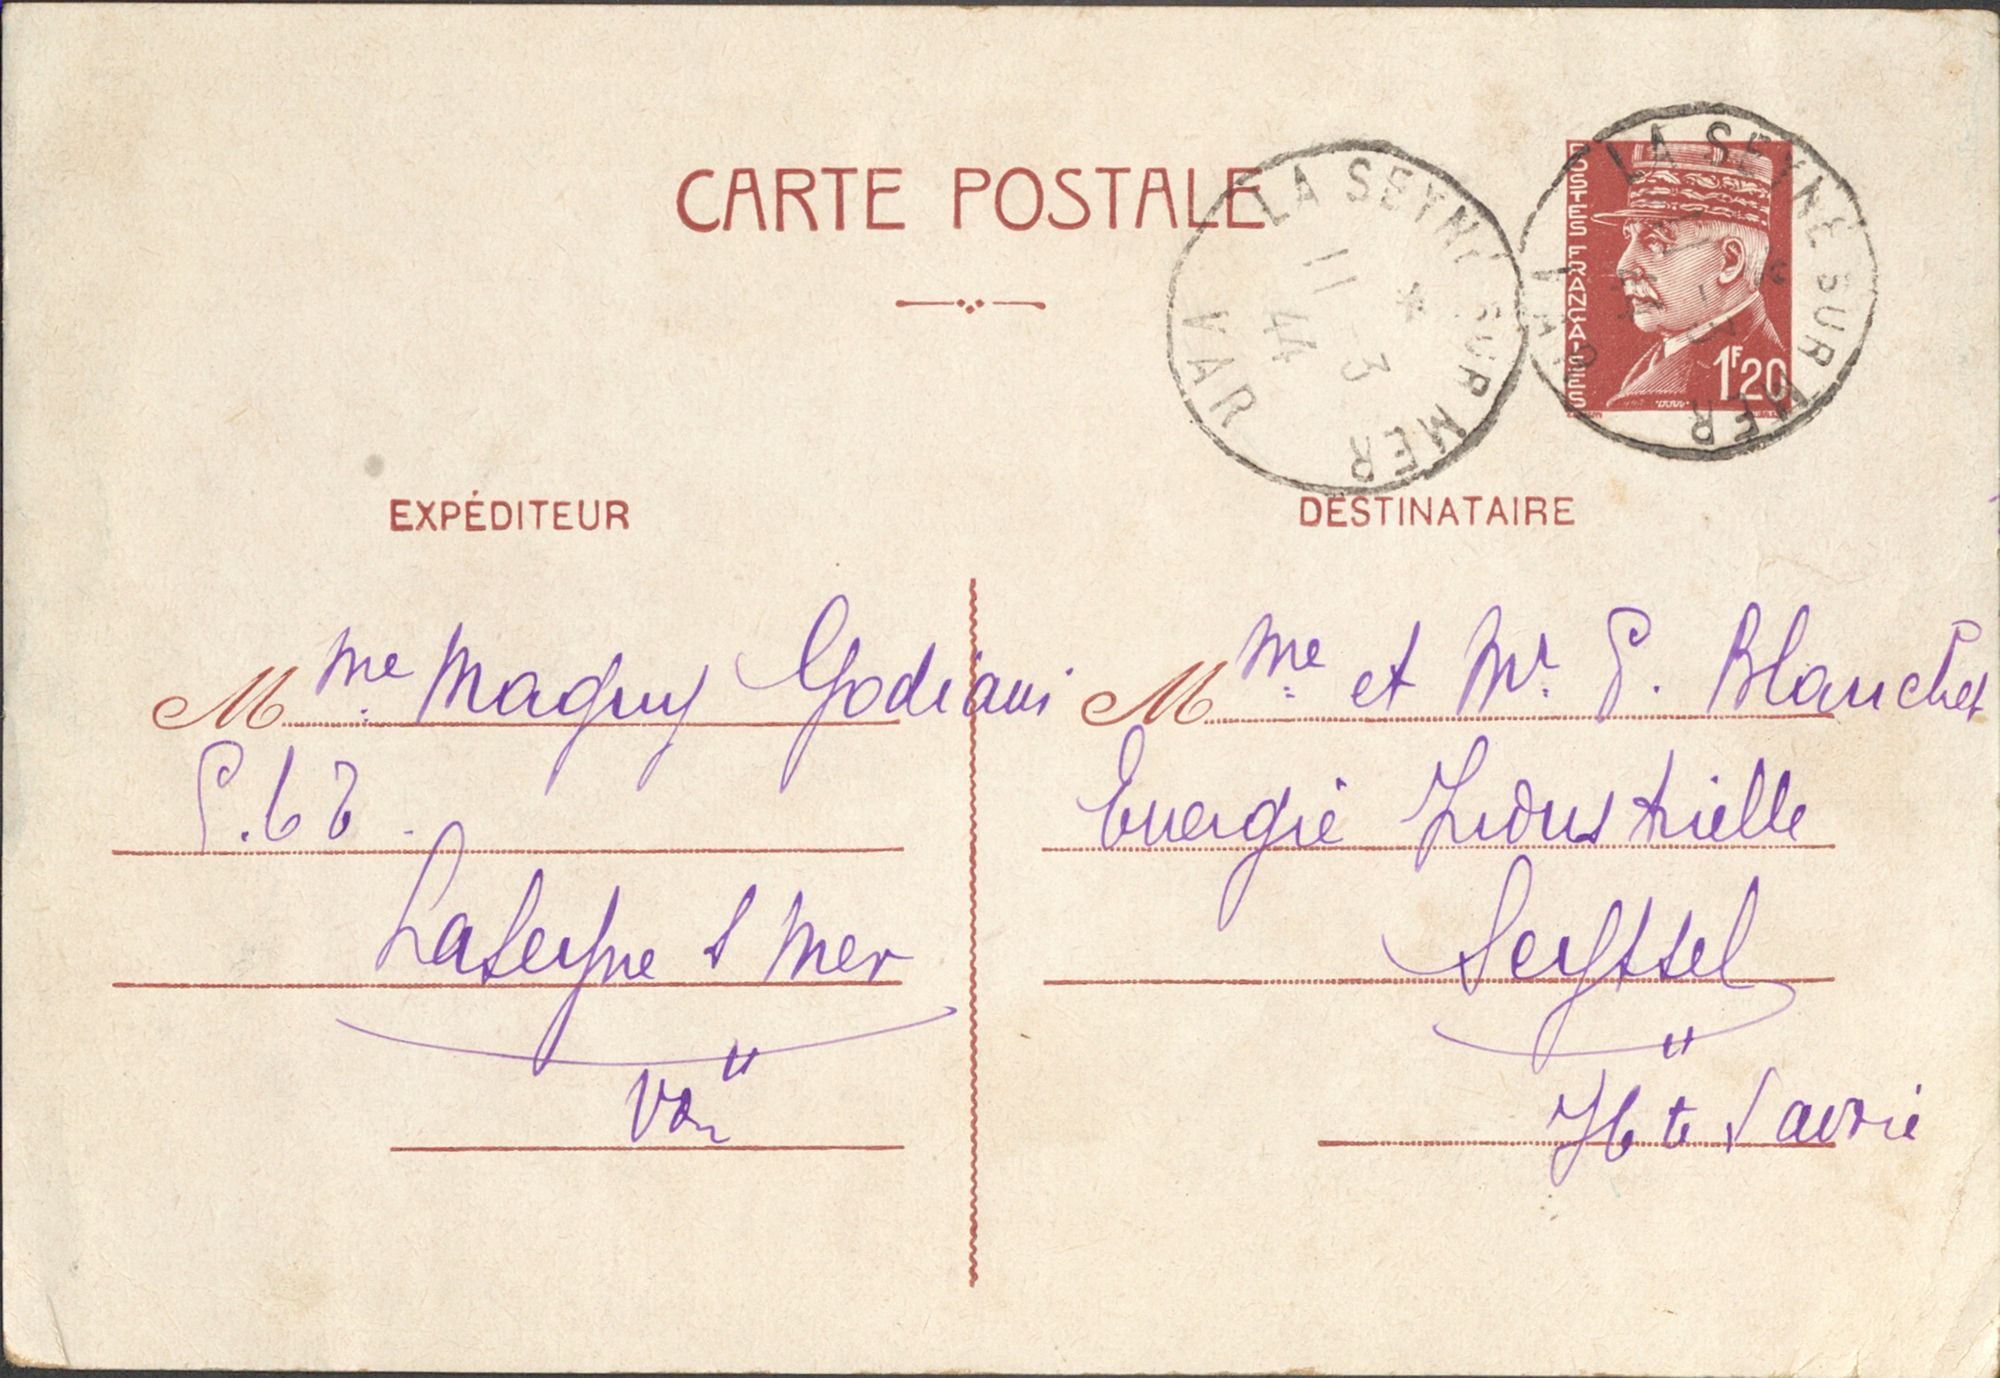 CARTE POSTALE
LA SEYNE SUR MER
11 -3
44
VAR
LA SEYNE SUR MER
VAR
POSTES FRANÇAISES
1F20
EXPÉDITEUR
Mme Maguy Godiani
La Seyne s Mer
Var
DESTINATAIRE
Mme et Mr P. Blanchet
Energie Industrielle
Seyssel
Hte Savoie